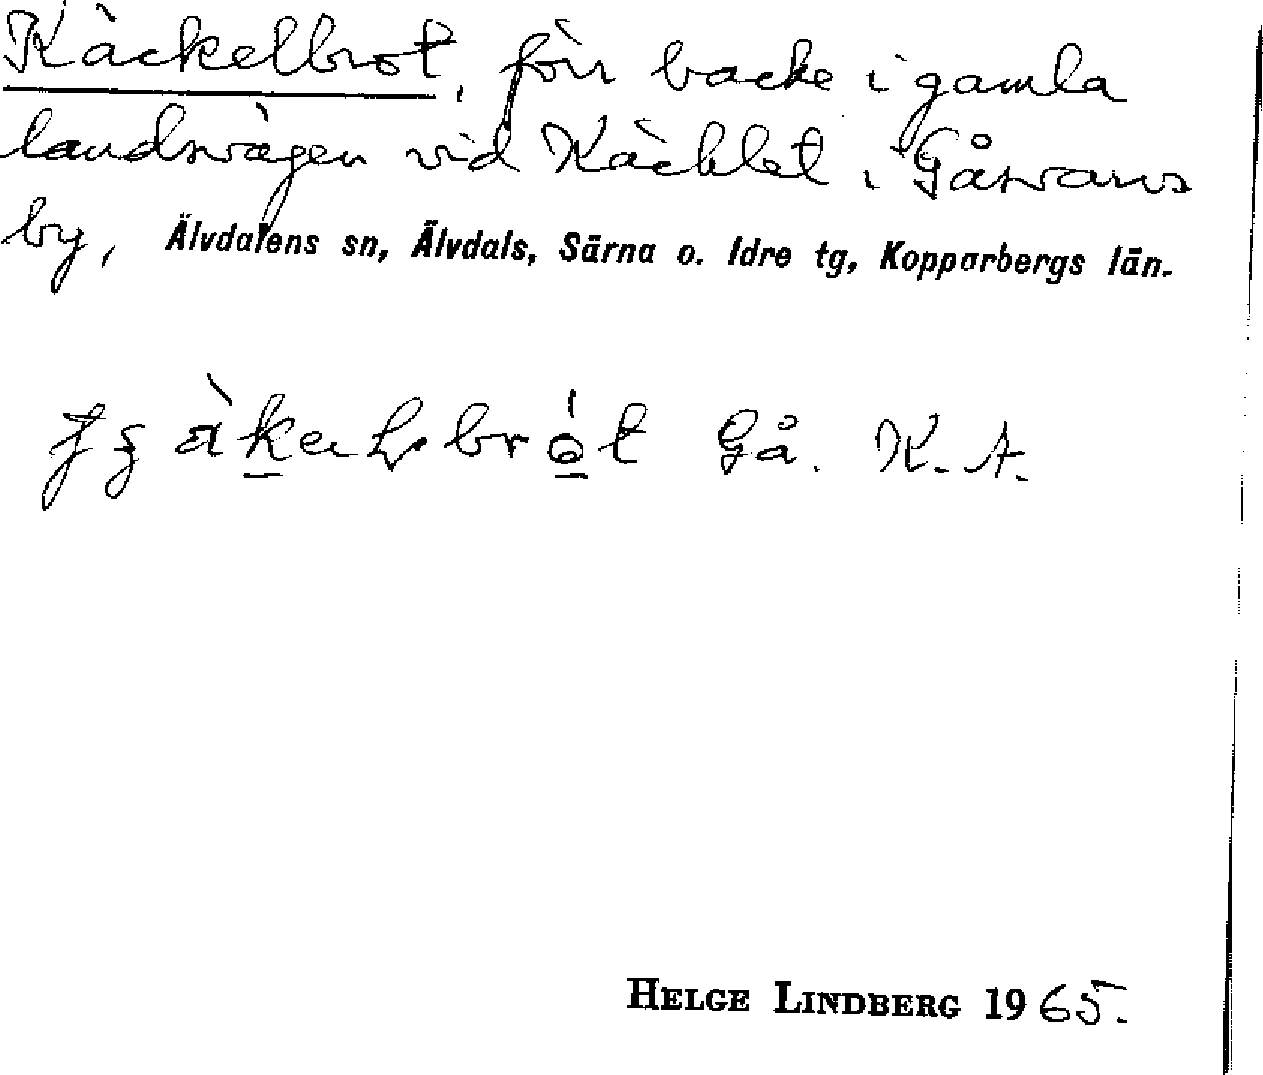 Käckelbrot, förr backe i gamla
landsvägen vid Käcklet i Gåsvarvs
by, Älvdalens sn, Älvdals, Särna o. Idre tg, Kopparbergs län.
Gå. K. A.
HELGE LINDBERG 1965.